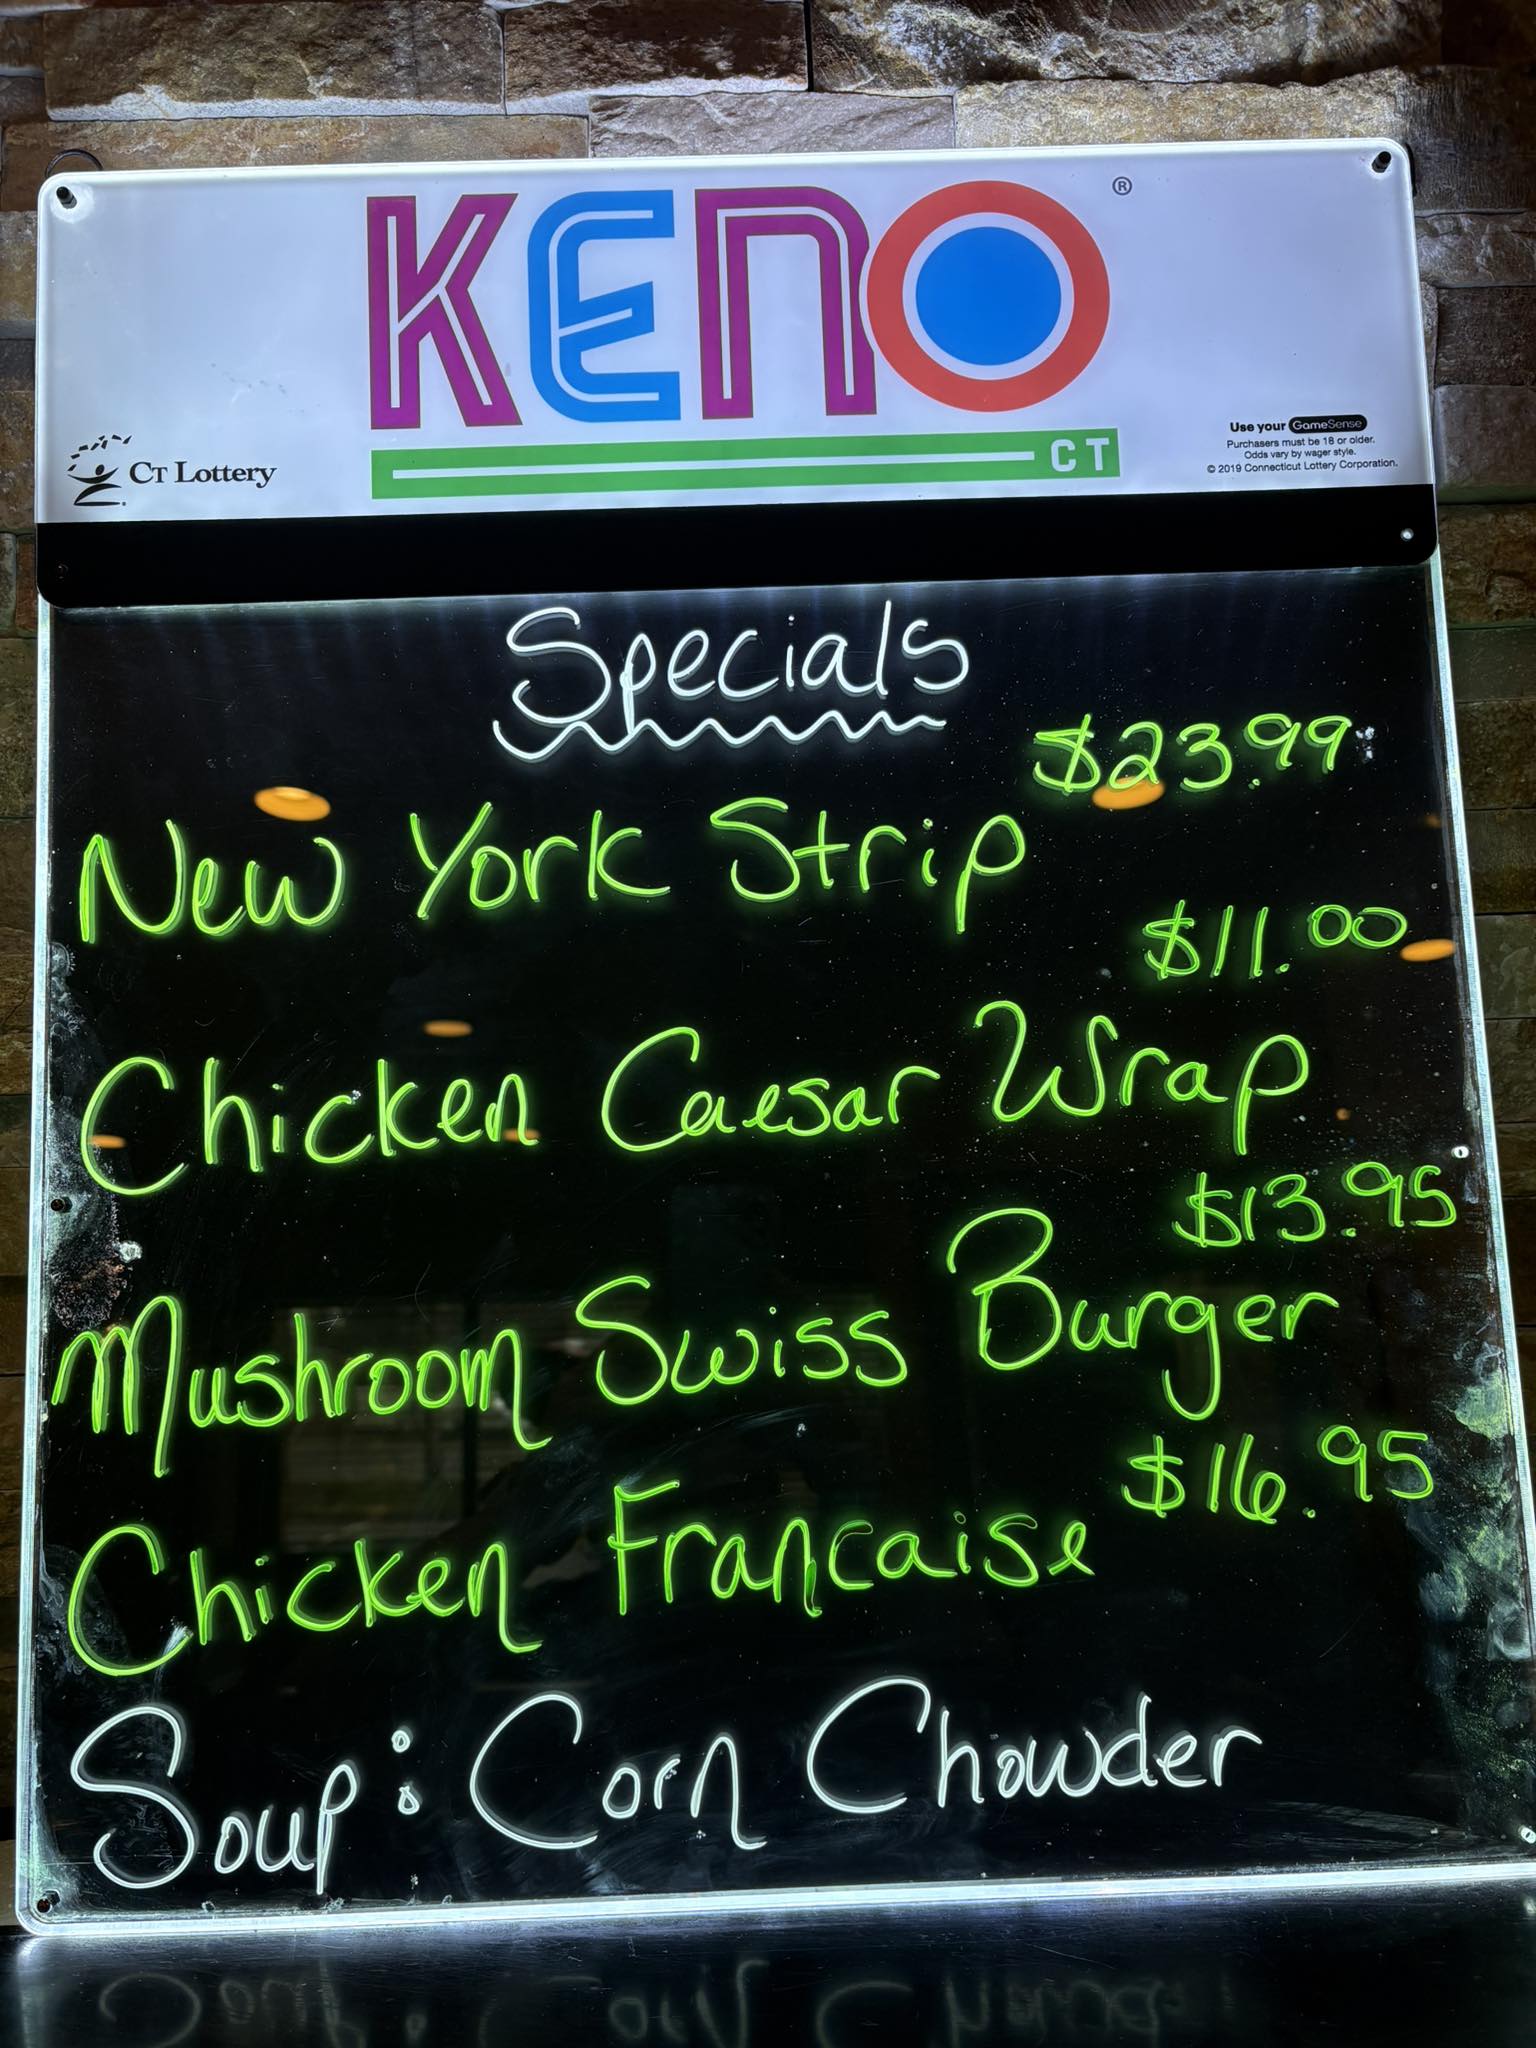 KENO ®
CT
CT Lottery
Use your GameSense
Purchasers must be 18 or older.
Odds vary by wager style.
© 2019 Connecticut Lottery Corporation.
Specials
$23.99
New York Strip
$11.00
Chicken Caesar Wrap
$13.95
Mushroom Swiss Burger
$16.95
Chicken Francaise
Soup: Corn Chowder